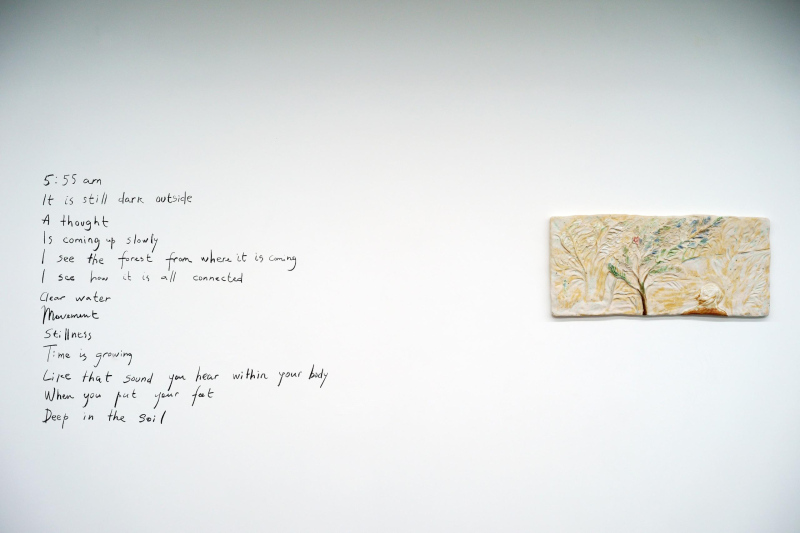 5:55 am
It is still dark outside
A thought
Is coming up slowly
I see the forest from where it is coming
I see how it is all connected
Clear water
Movement
Stillness
Time is growing
Like that sound you hear within your body
When you put your feet
Deep in the soil